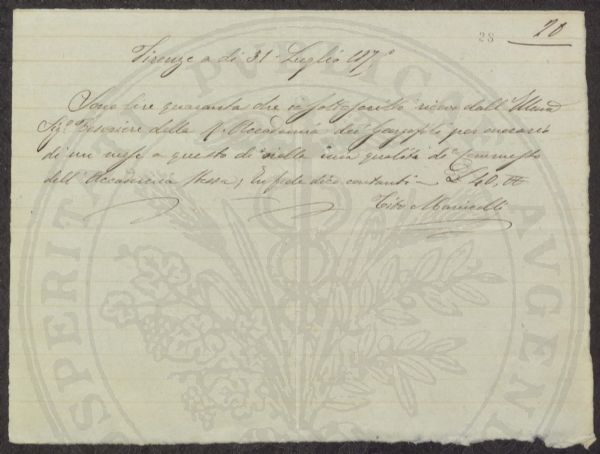 28
20
Firenze a dì 31 Luglio 187
Sono lire quaranta che io sottoscritto ricevo dall' Illmo
Sigr Tesoriere della R. Accademia dei Georgofili per onorario
di un mese a questo dì nella mia qualità di Commesso
dell' Accademia stessa, In fede dico contanti — £ 40,
Tito
PROSPERITATI PUBLICAE AUGENDAE